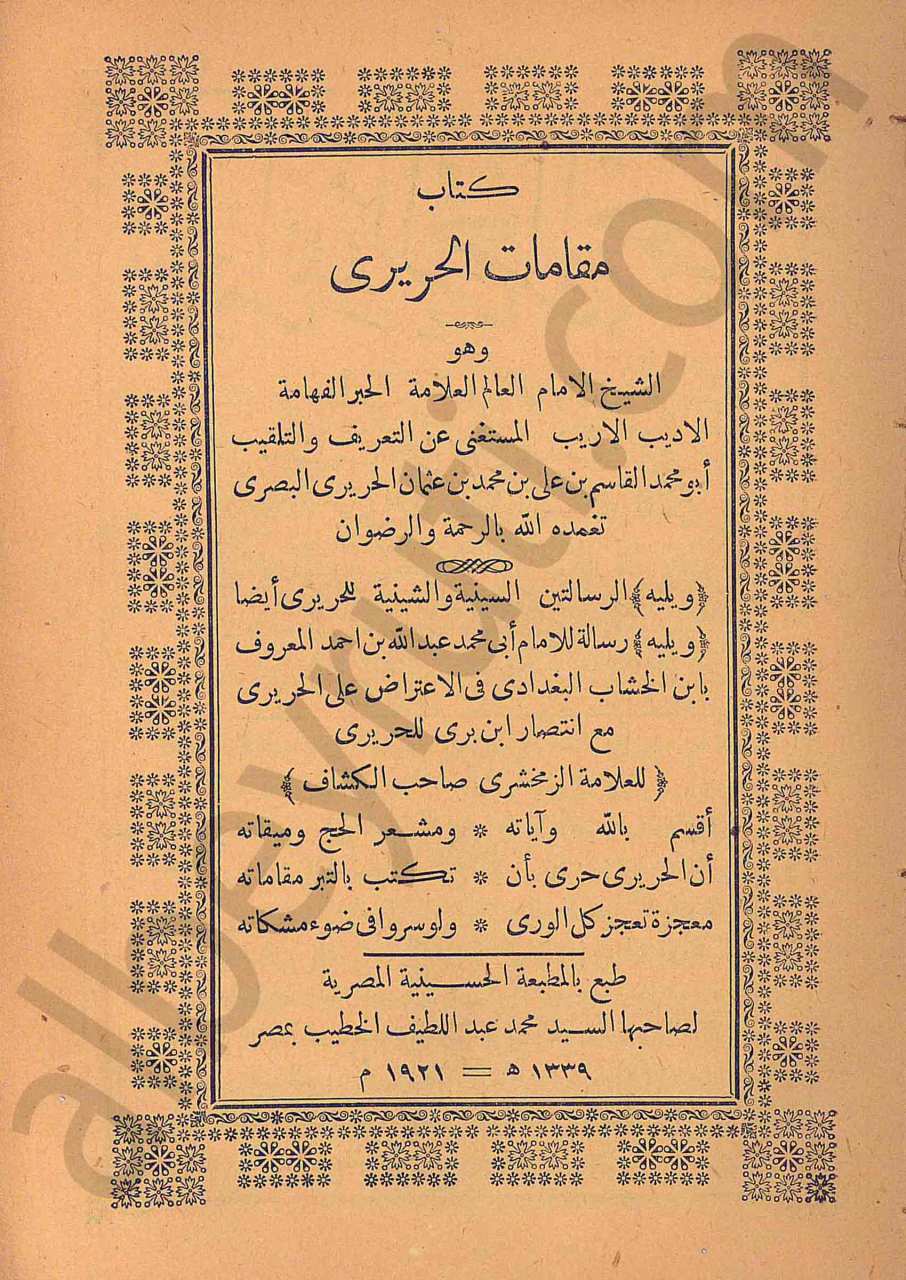 كتاب
مقامات الحريرى
وهو
الشيخ الامام العالم العلامة الحبر الفهامة
الاديب الاريب المستغنى عن التعريف والتلقيب
أبو محمد القاسم بن على بن محمد بن عثمان الحريرى البصرى
تغمده الله بالرحمة والرضوان
﴿ويليه﴾ الرسالتين السينية والشينية للحريرى أيضا
﴿ويليه﴾ رسالة للامام أبى محمد عبد الله بن احمد المعروف
بابن الخشاب البغدادى فى الاعتراض على الحريرى
مع انتصار ابن برى للحريرى
﴿للعلامة الزمخشرى صاحب الكشاف﴾
أقسم بالله وآياته * ومشعر الحج وميقاته
أن الحريرى حرى بأن * تكتب بالتبر مقاماته
معجزة تعجز كل الورى * ولو سروا فى ضوء مشكاته
طبع بالمطبعة الحسينية المصرية
لصاحبها السيد محمد عبد اللطيف الخطيب بمصر
١٣٣٩ ه = ١٩٢١ م
albeyruti.com